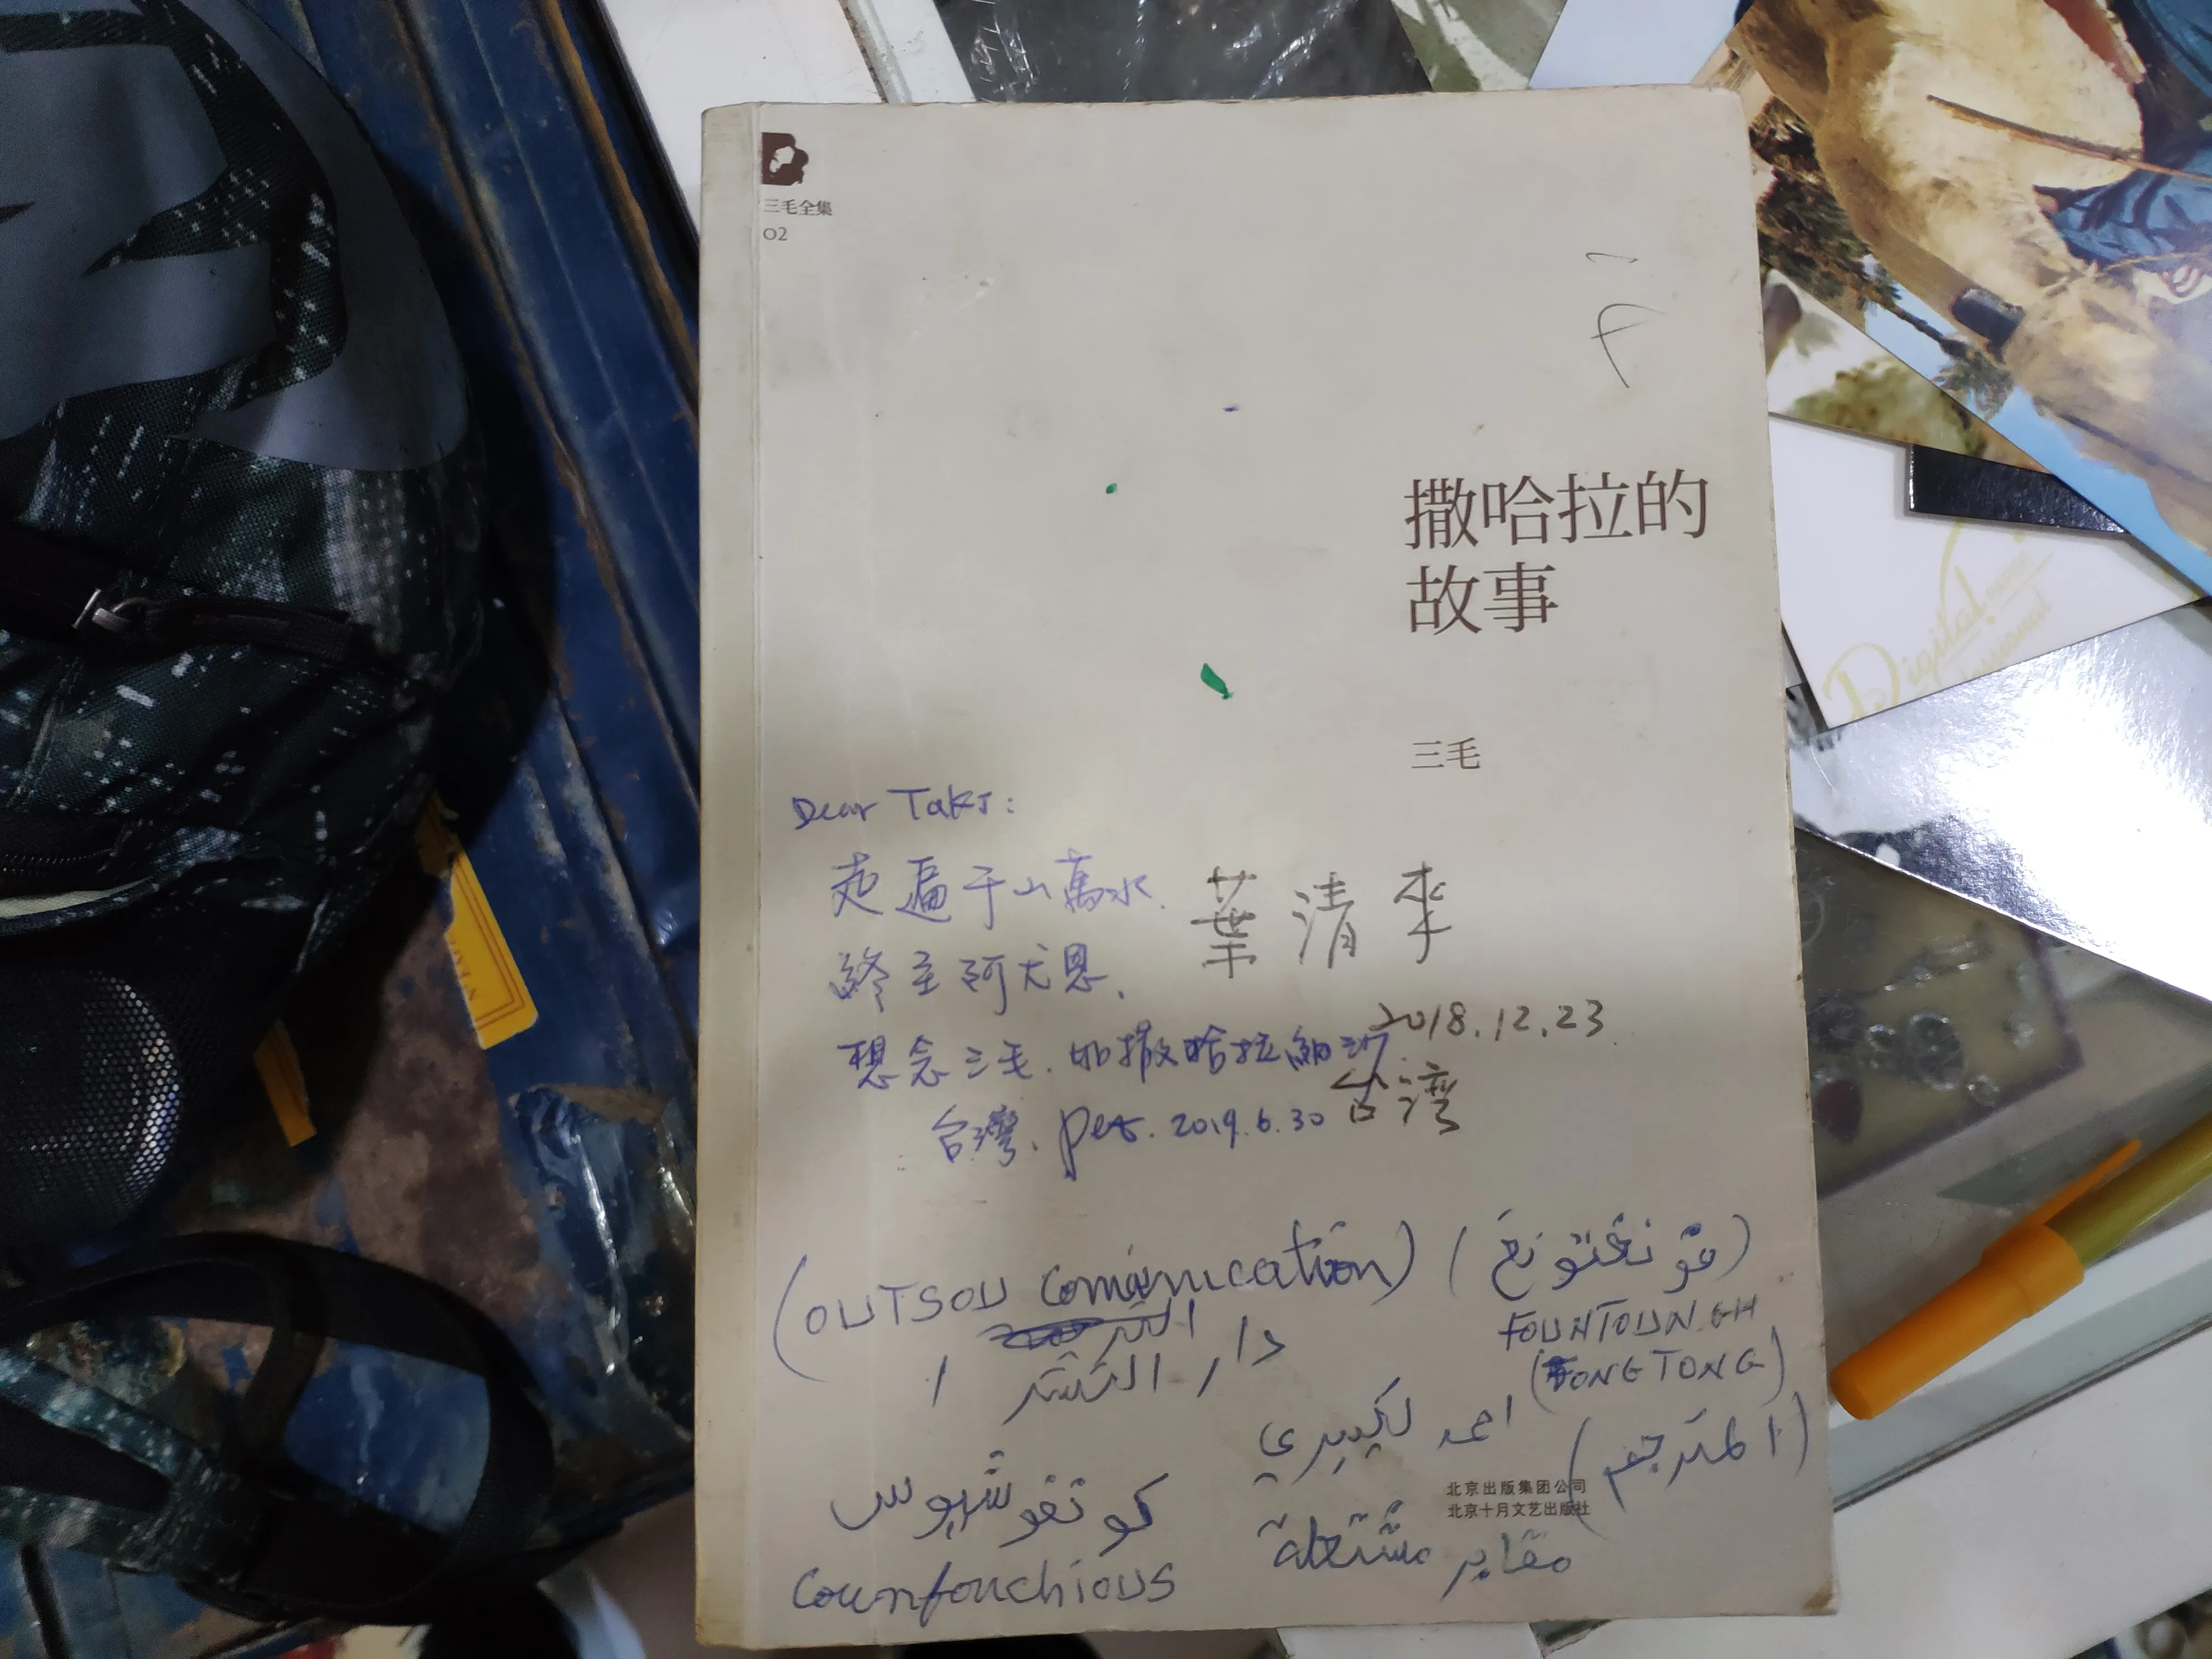 三毛全集
02
撒哈拉的
故事
三毛
Dear Taki:
走遍千山萬水.
終至阿尤恩.
想念三毛. 如撒哈拉細沙.
台灣. pet. 2019.6.30
葉清來
2018.12.23
台湾
(OUTSOU Comamunication)
(فو نغتو نغ)
FOUNTOUN.GH
(FONGTONG)
دار النشر
احمد لكبيري
(المترجم)
كو نفو شيوس
Counfouchious
مقابر مشتعلة
北京出版集团公司
北京十月文艺出版社
Digital